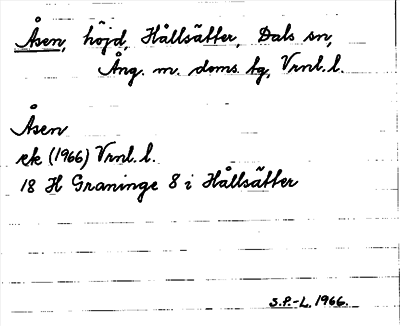 Åsen, höjd, Hållsätter, Dals sn,
Ång. m. doms. tg, Vrnl. l.
Åsen
ek (1966) Vrnl. l.
18 H Graninge 8 i Hållsätter
S.P.-L. 1966.